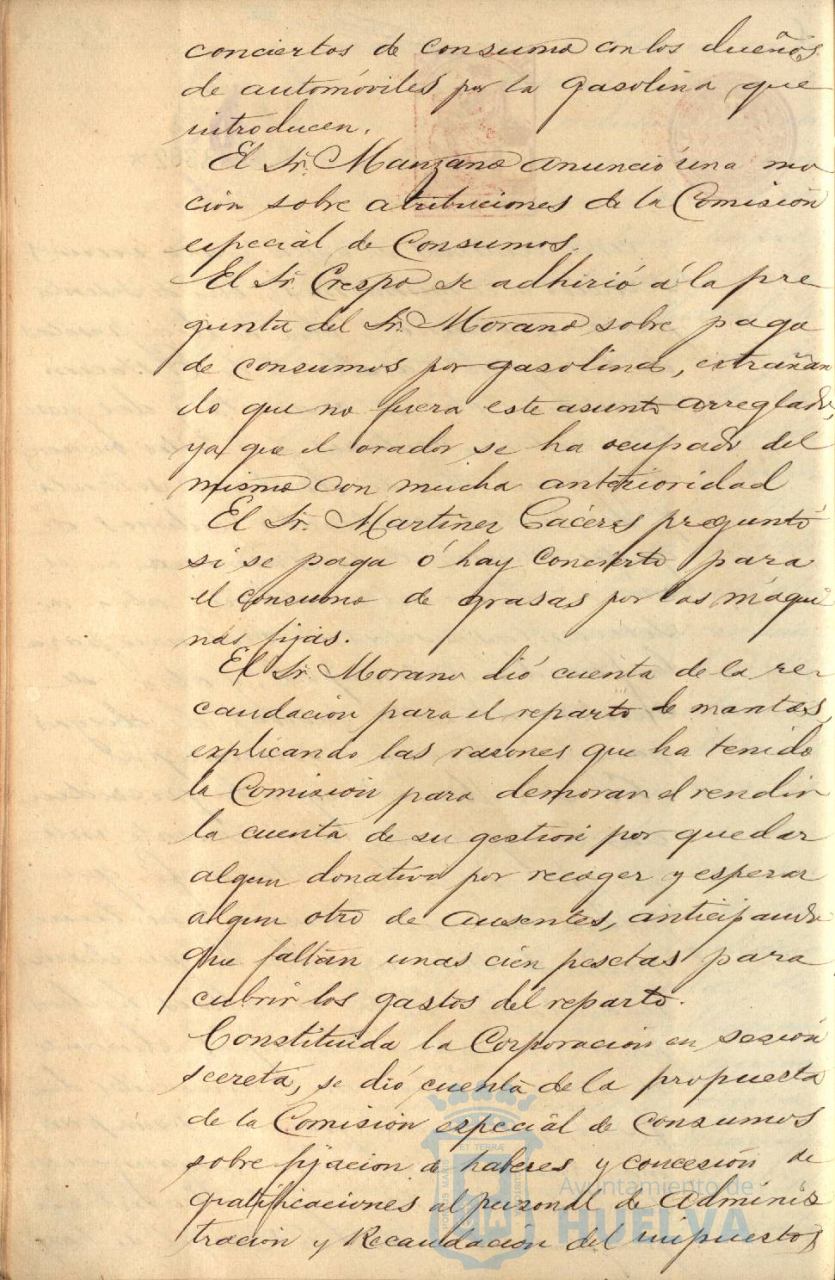 conciertos de consumo con los dueños
de automóviles por la gasolina que
introducen.
El Sr. Manzano anunció una mo
ción sobre atribuciones de la Comisión
especial de Consumos.
El Sr. Crespo se adhirió á la pre
gunta del Sr. Morano sobre pago
de consumos por gasolina, extrañan
do que no fuera este asunto arreglado,
ya que el orador se ha ocupado del
mismo con mucha anterioridad
El Sr. Martinez Cáceres preguntó
si se paga ó hay concierto para
el consumo de grasas por las máqui
nas fijas.
El Sr. Morano dió cuenta de la re
caudación para el reparto de mantas,
explicando las razones que ha tenido
la Comisión para demorar el rendir
la cuenta de su gestión por quedar
algun donativo por recoger y esperar
algun otro de ausentes, anticipando
que faltan unas cien pesetas para
cubrir los gastos del reparto.
Constituida la Corporación en sesión
secreta, se dió cuenta de la propuesta
de la Comisión especial de Consumos
sobre fijacion de haberes y concesión de
gratificaciones al personal de Adminis
tración y Recaudación del impuesto,
Ayuntamiento de
HUELVA